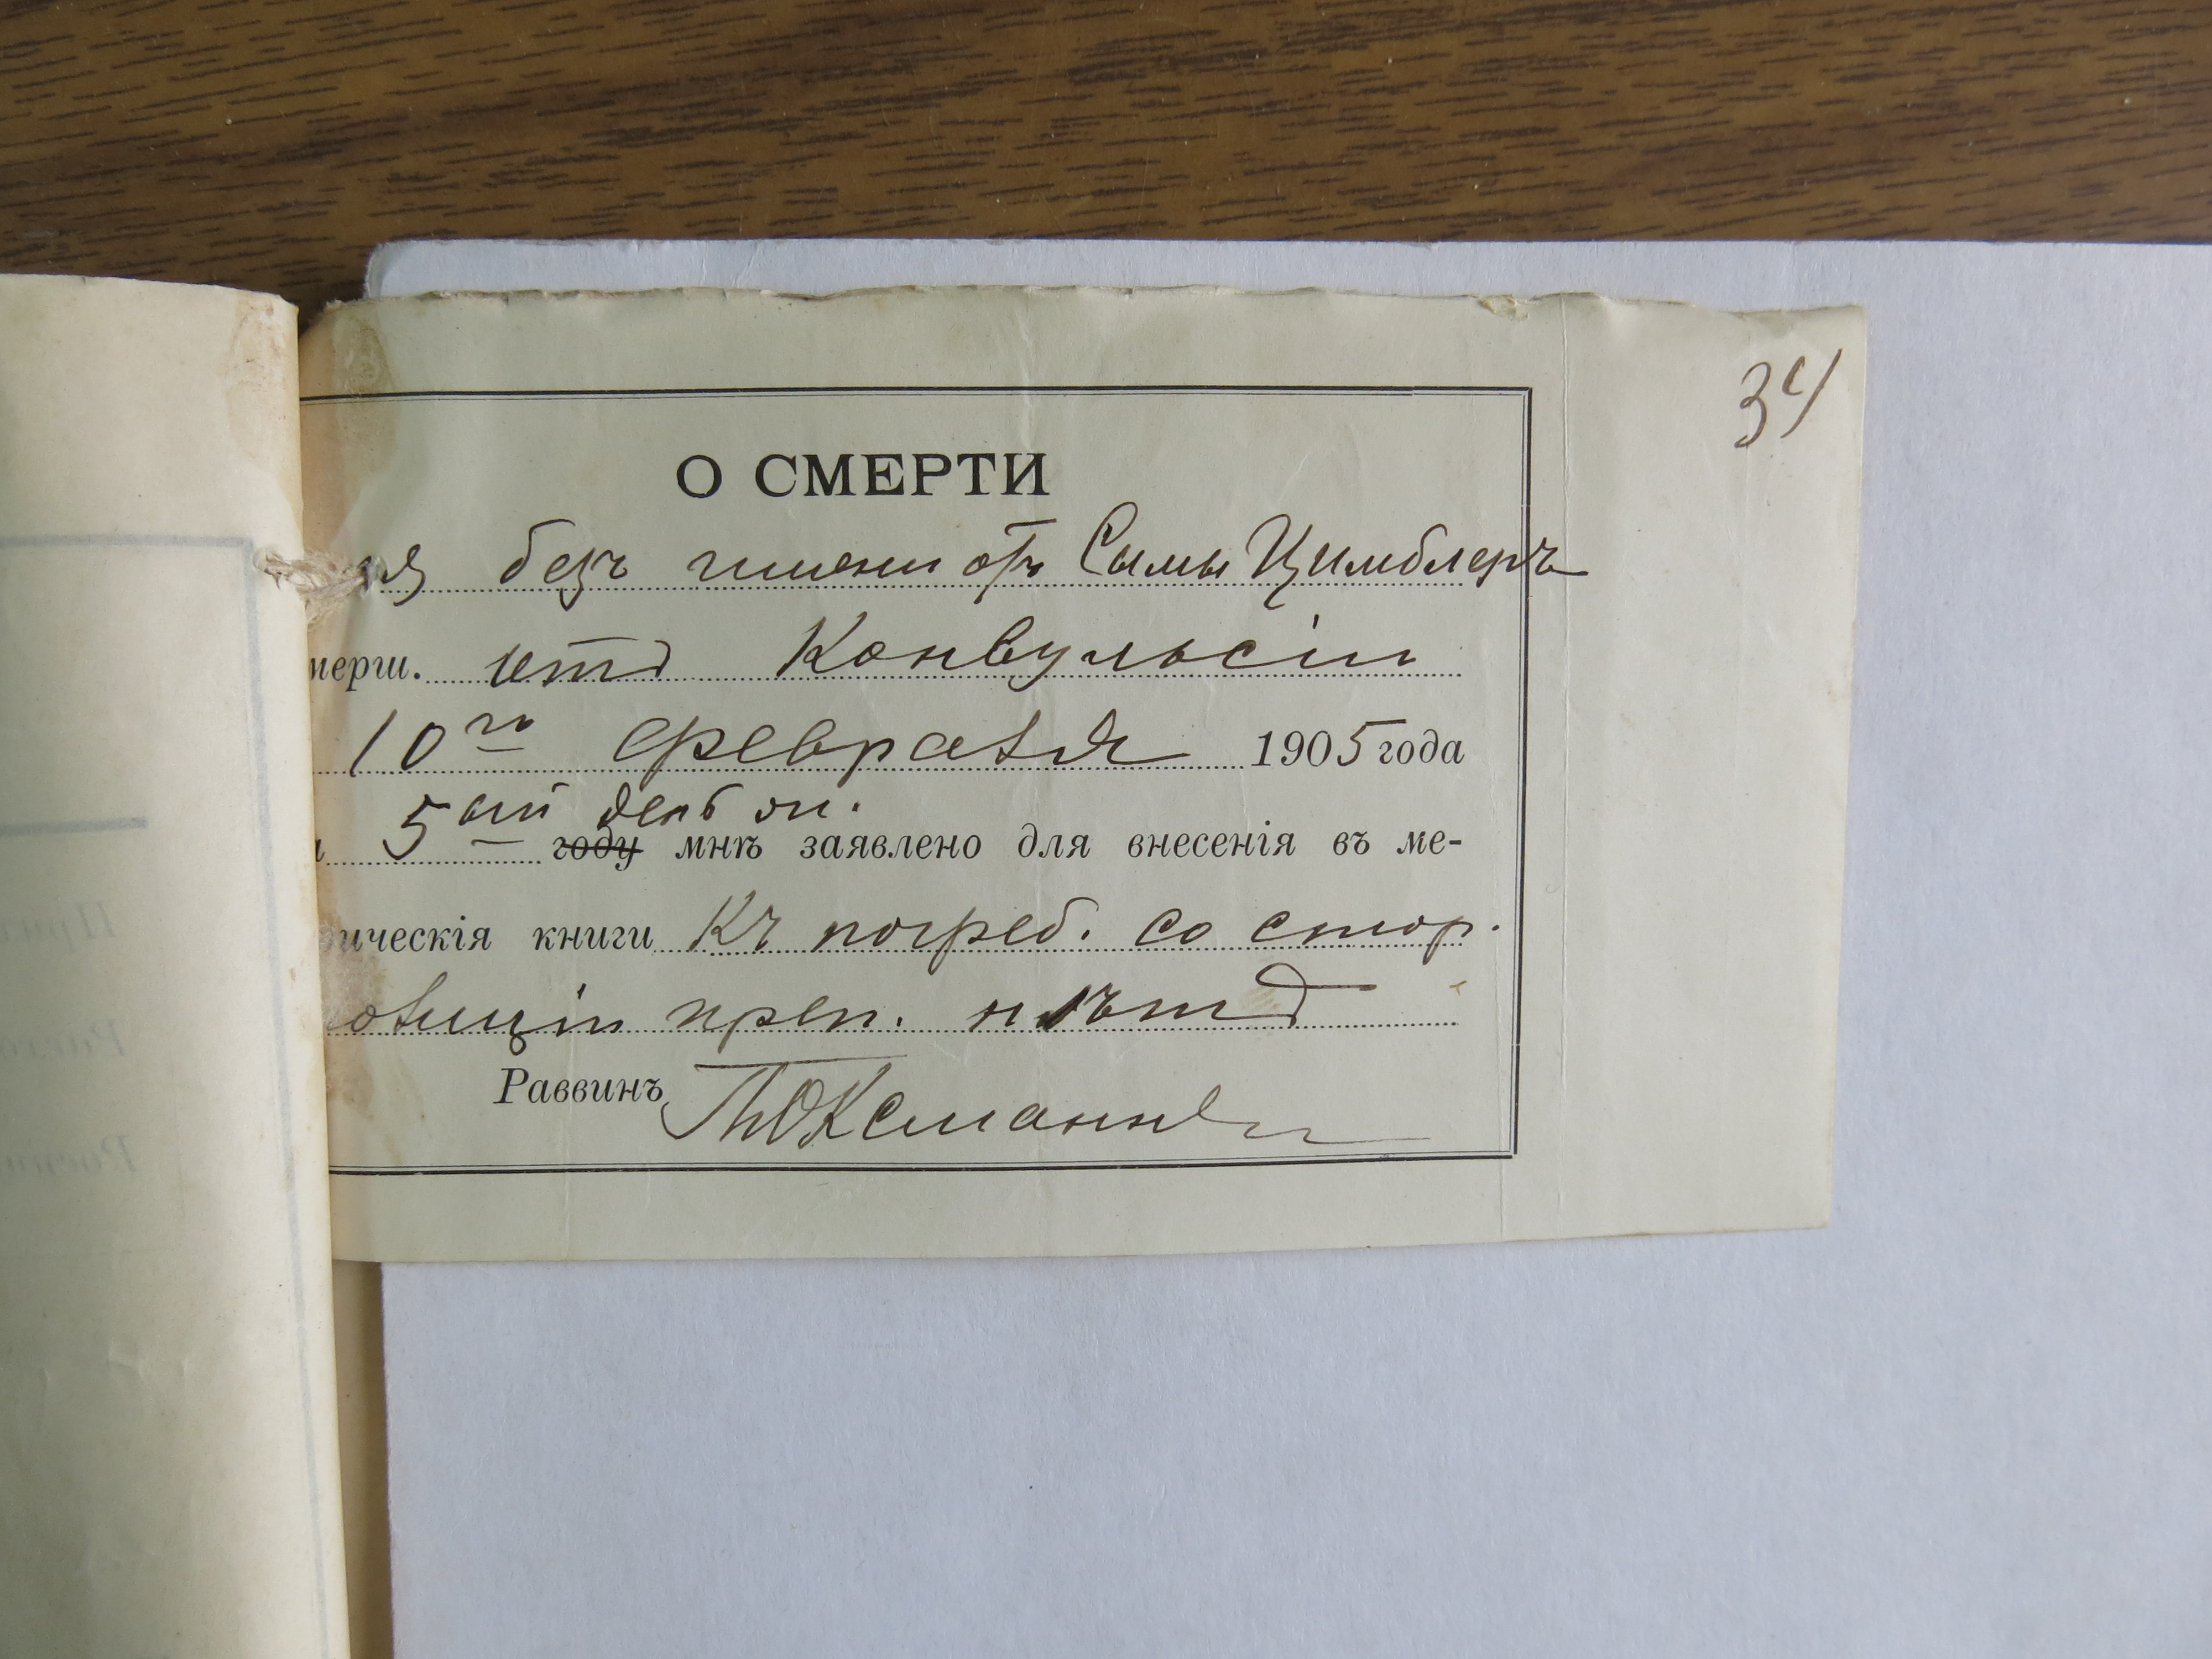 34
О СМЕРТИ
ая безъ имени отъ Сымы Цимблеръ
мерш. отъ Конвульсіи
10го февраля 1905 года
5ый день ж. году мнѣ заявлено для внесенія въ ме-
ическія книги Къ погреб. со стор.
олиціи преп. нѣтъ
Раввинъ